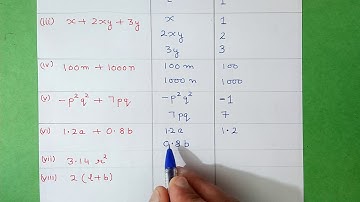 (iii) x + 2xy + 3y x 1
2xy 2
3y 3
(iv) 100m + 1000n 100m 100
1000n 1000
(v) -p²q² + 7pq -p²q² -1
7pq 7
(vi) 1.2a + 0.8b 1.2a 1.2
0.8b
(vii) 3.14 r²
(viii) 2(l+b)